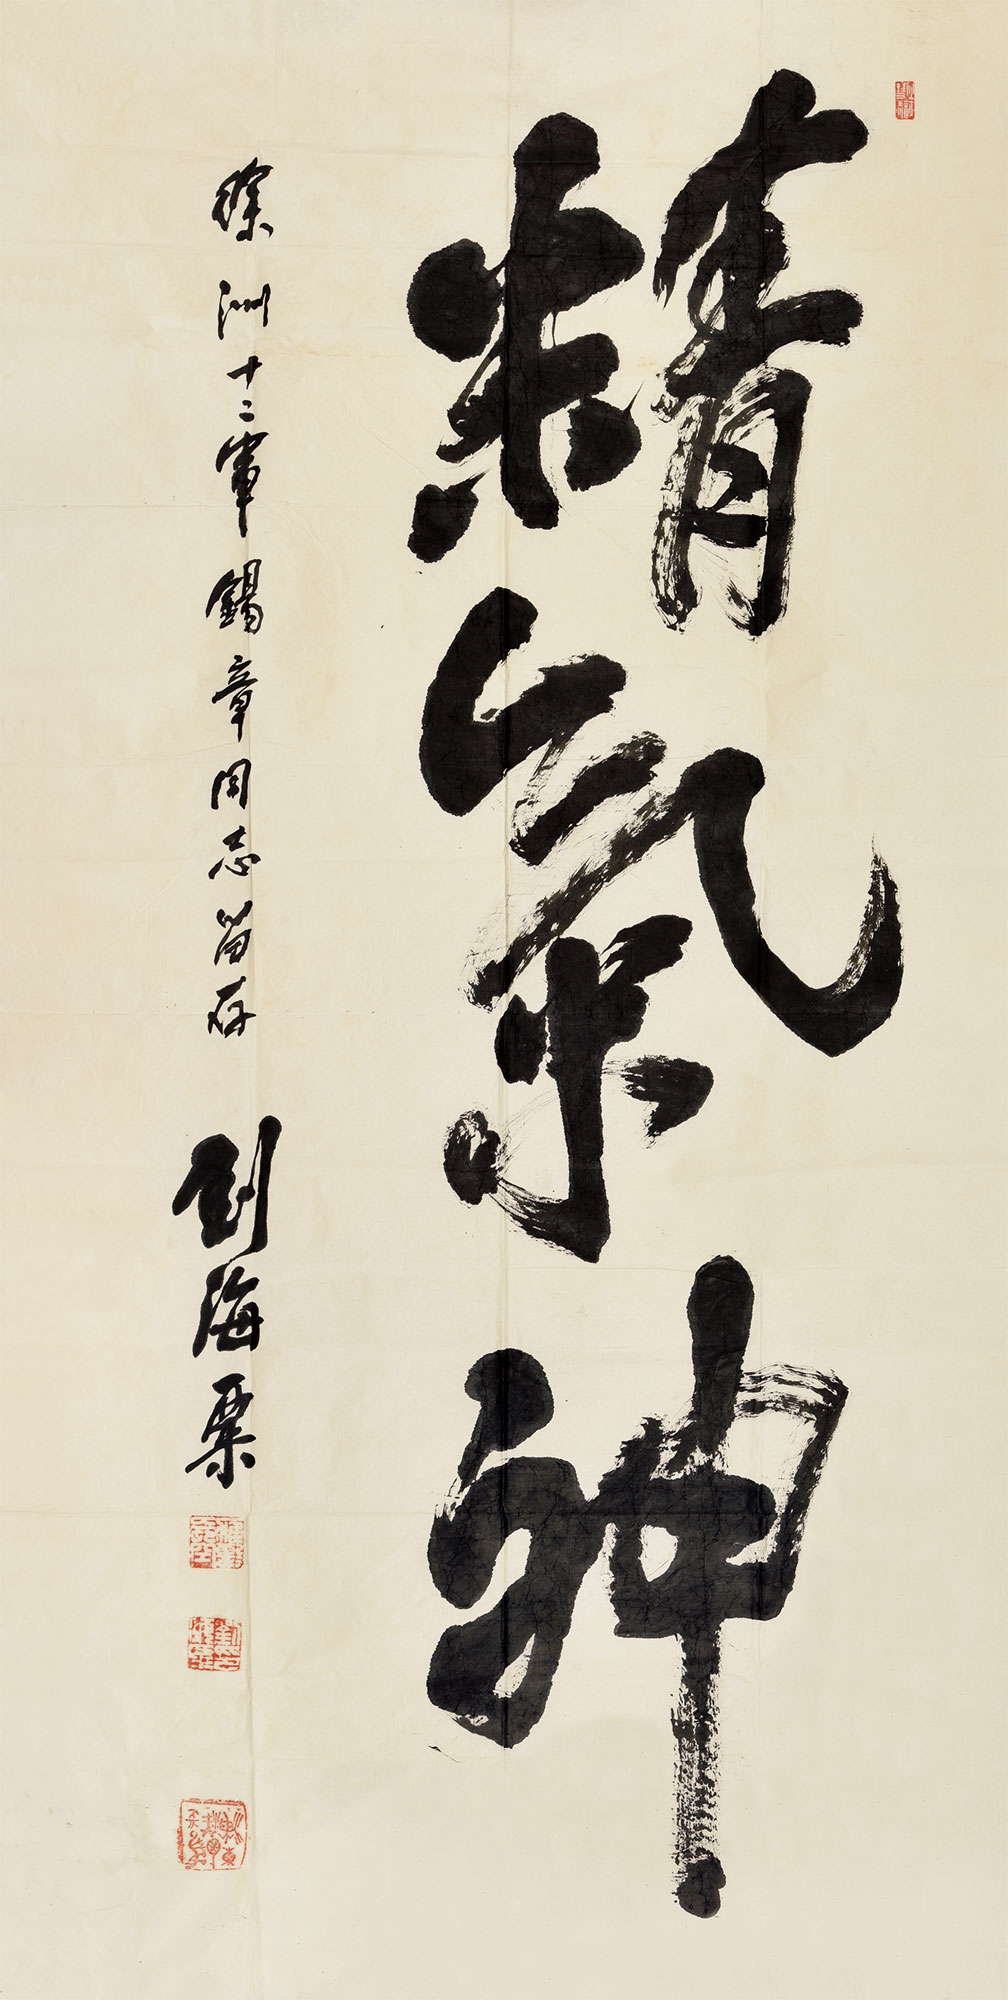 精氣神
徐洲十二軍錫章同志留存
劉海粟